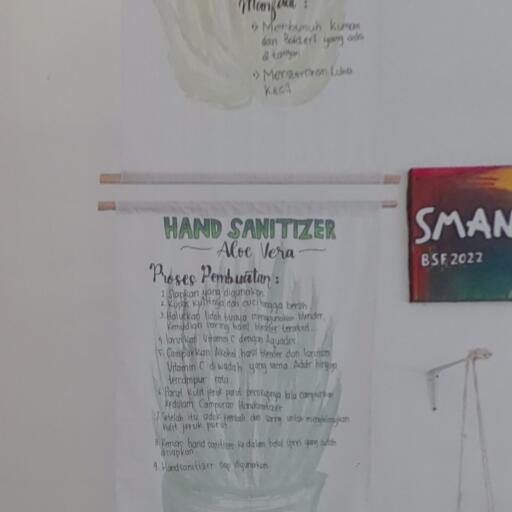 Manfaat :
> Membunuh kuman
dan Bakteri yang ada
di tangan
> Mengeringkan Luka
kecil
HAND SANITIZER
Aloe Vera
Proses Pembuatan :
1. Siapkan yang digunakan
2. Kupas kulitnya dan cuci hingga bersih
3. Haluskan lidah buaya menggunakan blender,
kemudian saring hasil blender tersebut
4. larutkan Vitamin C dengan Aquades
5. Campurkan Alkohol, hasil blender dan larutan
Vitamin C di wadah yang sama. Aduk hingga
tercampur rata.
6. Parut kulit jeruk purut secukupnya lalu campurkan
kedalam Campuran Handsanitizer
7. Setelah itu aduk kembali dan saring untuk menghilangkan
kulit jeruk purut
8. Kemas hand sanitizer ke dalam botol spray yang sudah
disiapkan
9. Handsanitizer siap digunakan
SMAN
BSF 2022